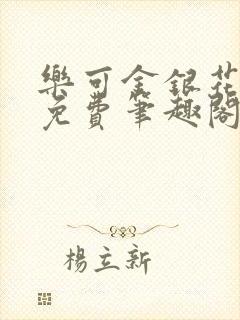 樂可金銀花
免費筆趣閣
楊立新